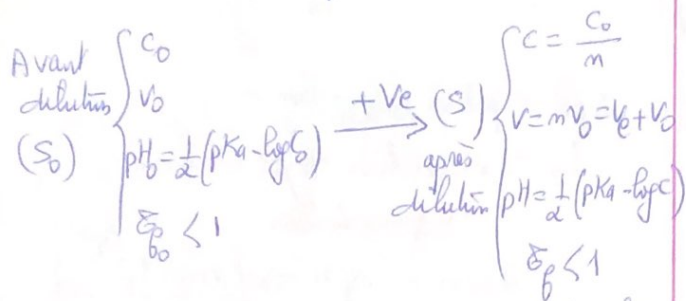 Avant dilution (S₀)
C₀
V₀
pH₀ = 1/2 (pKa - log C₀)
τf₀ < 1
+Ve
(S) après dilution
C = C₀/n
V = nV₀ = Ve + V₀
pH = 1/2 (pKa - log C)
τf < 1